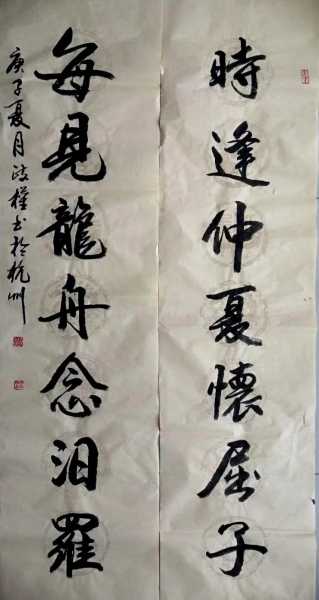 時逢仲夏懷屈子
每見龍舟念汨羅
庚子夏月政權书於杭州